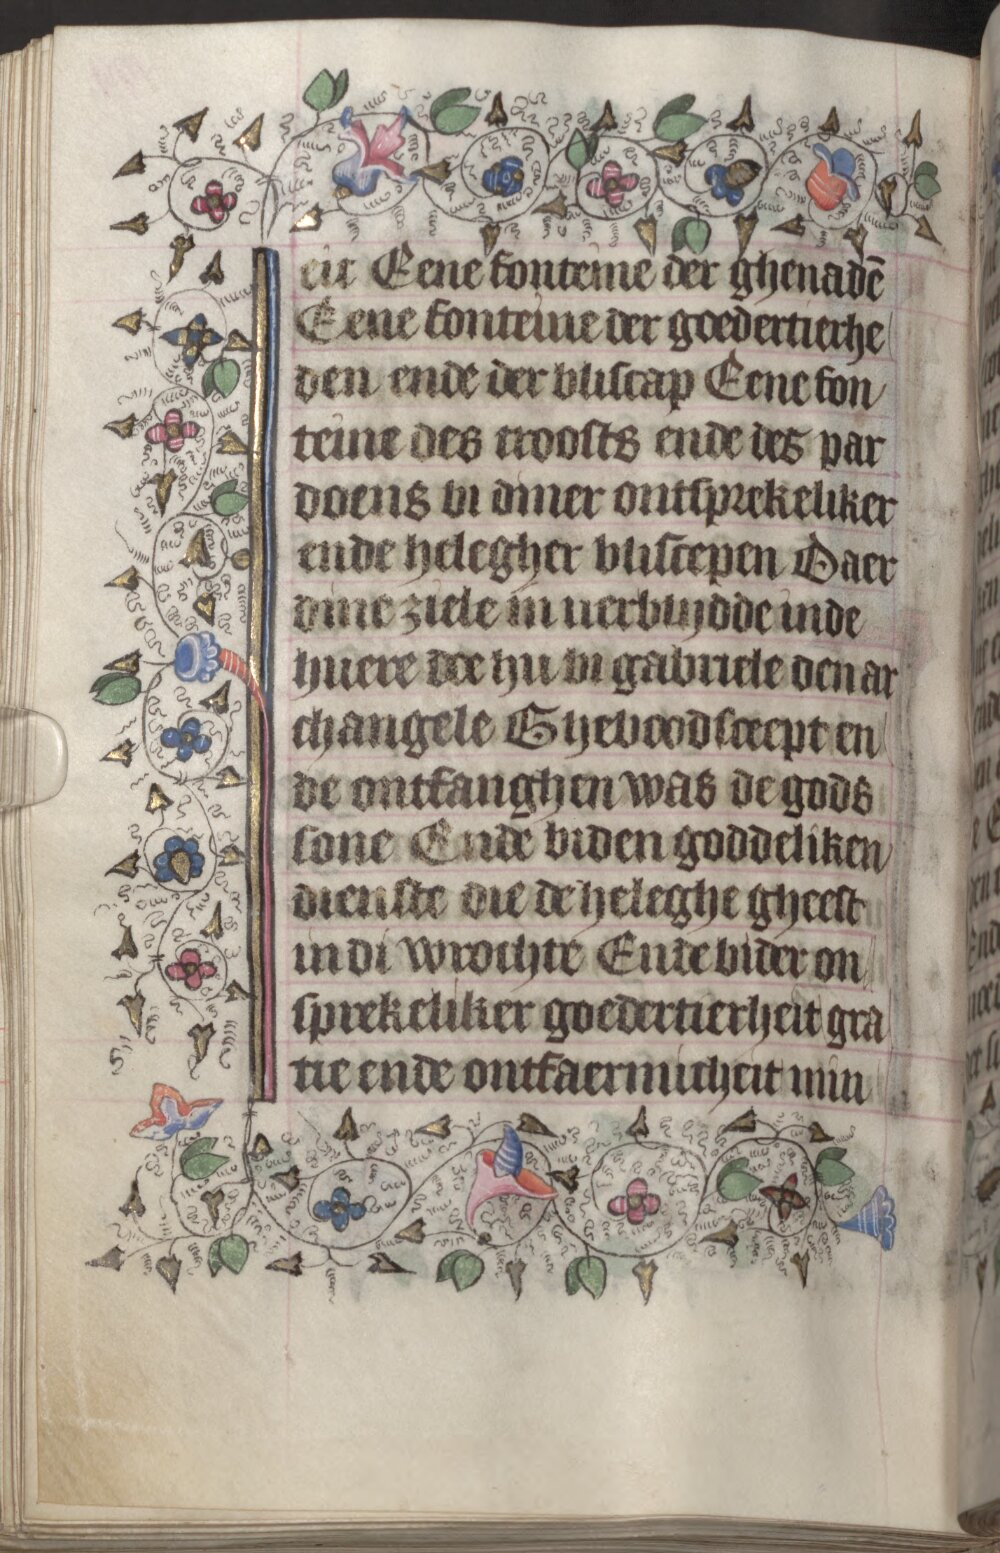 eit Eene fonteine der ghenadē
Eene fonteine der goedertierhe
den ende der bliscap Eene fon
teine des troosts ende des par
doens bi diner ontsprekeliker
ende helegher bliscepen Daer
dine ziele in verblijdde inde
huere die hu bi gabriele den ar
changele Gheboodsceept en
de ontfanghen was de gods
sone Ende biden goddeliken
dienste die de heleghe gheest
in di wrochte Ende bider on
sprekeliker goedertierheit gra
tie ende ontfaermicheit min